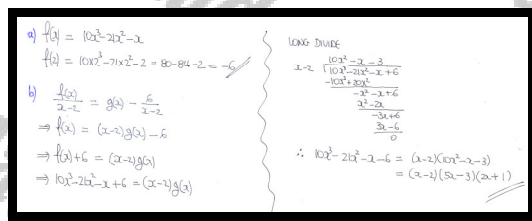 a) f(x) = 10x³-21x²-x
f(2) = 10×2³-21×2²-2 = 80-84-2 = -6
b) f(x)/(x-2) = g(x) - 6/(x-2)
⇒ f(x) = (x-2)g(x)-6
⇒ f(x)+6 = (x-2)g(x)
⇒ 10x³-21x²-x+6 = (x-2)g(x)
LONG DIVIDE
10x²-x-3
x-2 10x³-21x²-x+6
-10x³+20x²
-x²-x+6
x²-2x
-3x+6
3x-6
0
∴ 10x³-21x²-x-6 = (x-2)(10x²-x-3)
= (x-2)(5x-3)(2x+1)